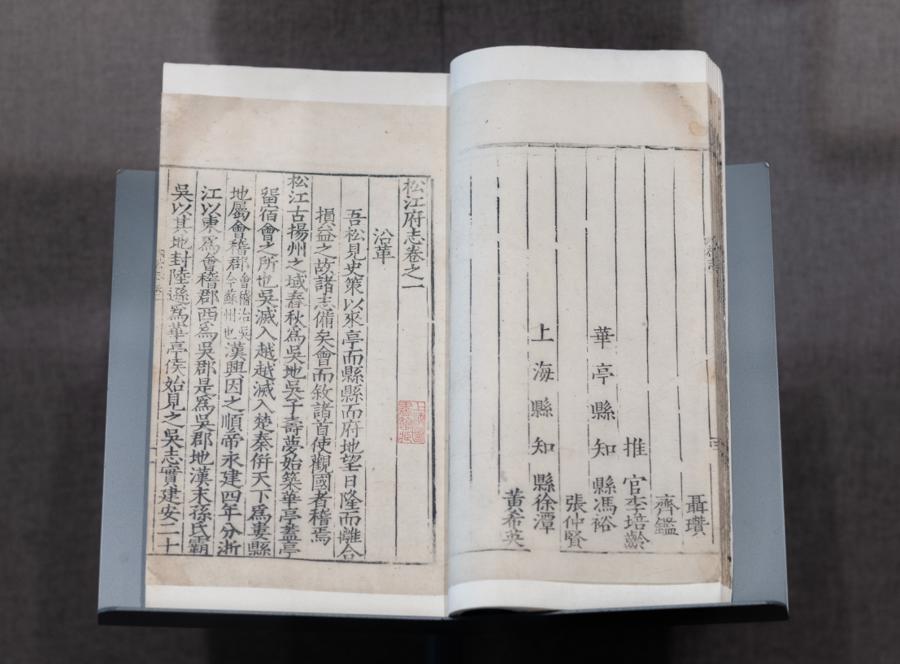 聶瓚
齊鑑
推官李培齡
華亭縣知縣馮裕
張仲賢
上海縣知縣徐潭
黃希英
松江府志卷之一
沿革
吾松見史策以來亭而縣縣而府地望日隆而離合
損益之故諸志備矣會而敘諸首使觀國者稽焉
松江古揚州之域春秋爲吳地吳子壽夢始築華亭蓋亭
留宿會之所也吳滅入越越滅入楚秦併天下爲婁縣
地屬會稽郡會稽治吳今蘇州也漢興因之順帝永建四年分浙
江以東爲會稽郡西爲吳郡是爲吳郡地漢末孫氏霸
吳以其地封陸遜爲華亭侯始見之吳志實建安二十